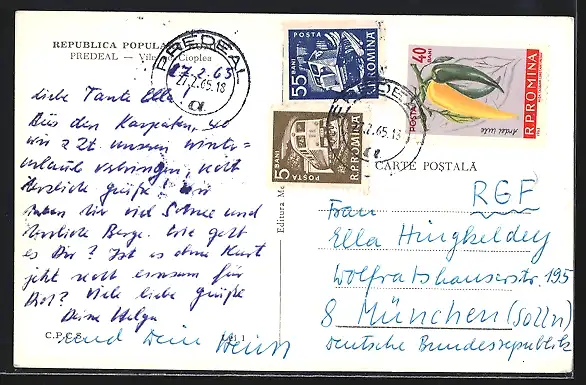 REPUBLICA POPULARĂ
PREDEAL — Vile în Cioplea
PREDEAL
17.2.65
17.2.65.18
Liebe Tante Ella
Aus den Karpaten, wo
wir z. Zt. unseren Winter-
urlaub verbringen, recht
herzliche Grüße! Wir
haben hier viel Schnee und
herrliche Berge. Wie geht
es Dir? Ist es ohne Kurt
jetzt recht einsam für
Dich? Viele liebe Grüße
Deine Helga
und Dein Heinz
C.P.C.S.
Editura Me
POSTA
55 BANI
R.P.ROMINA
5 BANI
POSTA
R.P.ROMINA
40 BANI
POSTA
Ardei iute
R.P.ROMINA
PREDEAL
2.65.18
CARTE POȘTALĂ
RGF
Frau
Ella Hingkeldey
Wolfratshauserstr. 195
8 München (Solln)
Deutsche Bundesrepublik